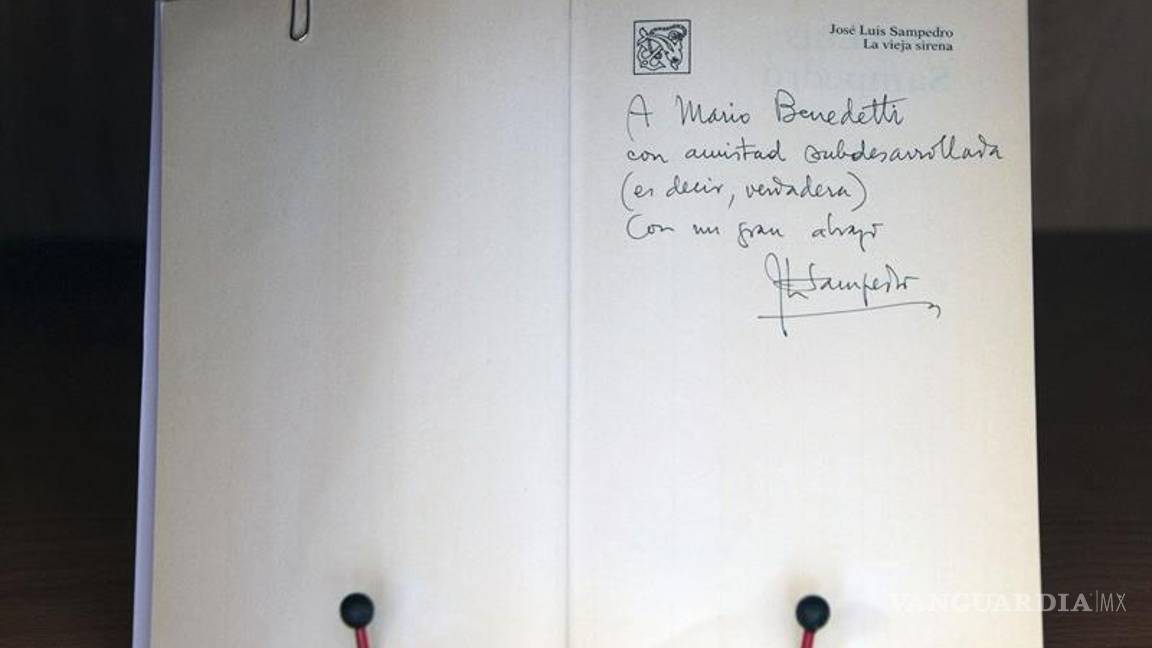 José Luis Sampedro
La vieja sirena
A Mario Benedetti
con amistad subdesarrollada
(es decir, verdadera)
Con un gran abrazo
JLSampedro
VANGUARDIA|MX